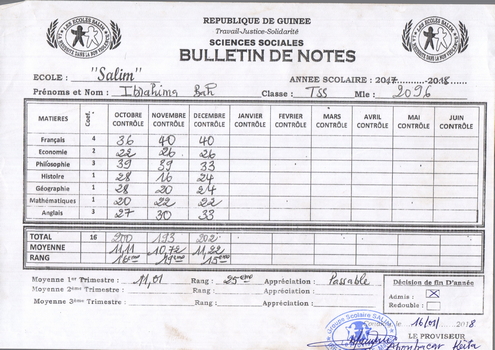 REPUBLIQUE DE GUINEE
Travail-Justice-Solidarité
SCIENCES SOCIALES
BULLETIN DE NOTES
ECOLE : "Salim" ANNEE SCOLAIRE : 2017 - 2018
Prénoms et Nom : Ibrahima Bah Classe : TSS Mle : 2096
MATIERES Coef. OCTOBRE CONTRÔLE NOVEMBRE CONTRÔLE DECEMBRE CONTRÔLE JANVIER CONTRÔLE FEVRIER CONTRÔLE MARS CONTRÔLE AVRIL CONTRÔLE MAI CONTRÔLE JUIN CONTRÔLE
Français 4 36 40 40
Economie 2 22 26 26
Philosophie 3 39 39 33
Histoire 1 28 16 24
Géographie 1 28 20 24
Mathématiques 1 20 22 22
Anglais 3 27 30 33
TOTAL 16 200 193 202
MOYENNE 11,11 10,72 11,22
RANG 16ème 19ème 15ème
Moyenne 1er Trimestre : 11,01 Rang : 25ème Appréciation : Passable
Moyenne 2ème Trimestre : Rang : Appréciation :
Moyenne 3ème Trimestre : Rang : Appréciation :
Décision de fin D'année
Admis : X
Redouble :
2018
LE PROVISEUR
Keita